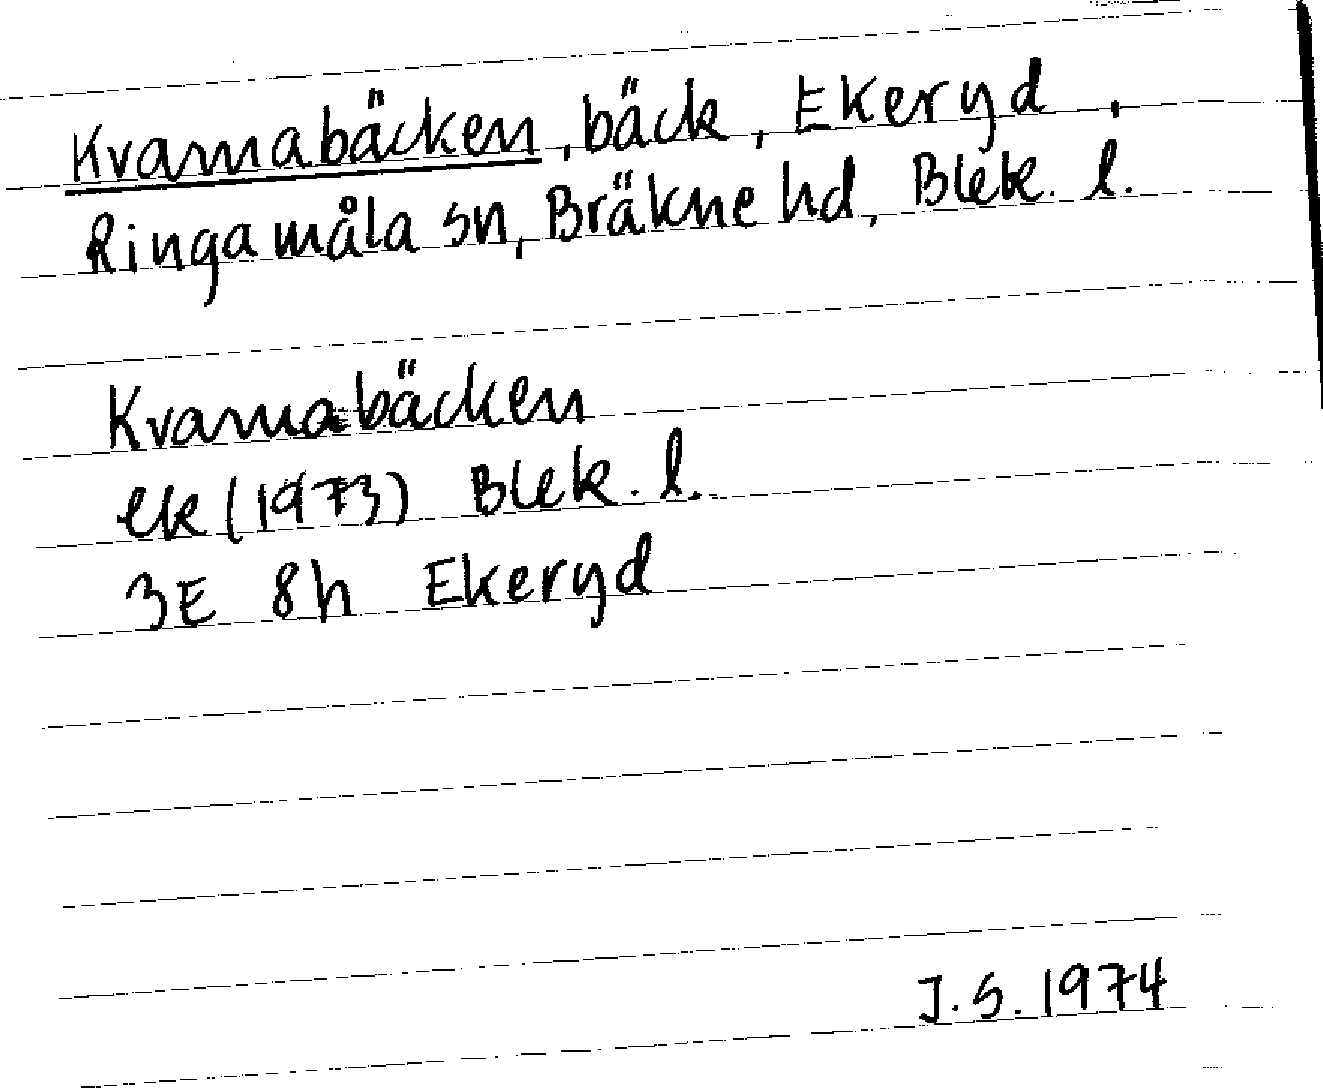 Kvarnabäcken, bäck, Ekeryd,
Ringamåla sn, Bräkne hd, Blek. l.
Kvarnabäcken
ek (1973) Blek. l.
3E 8h Ekeryd
J.S. 1974